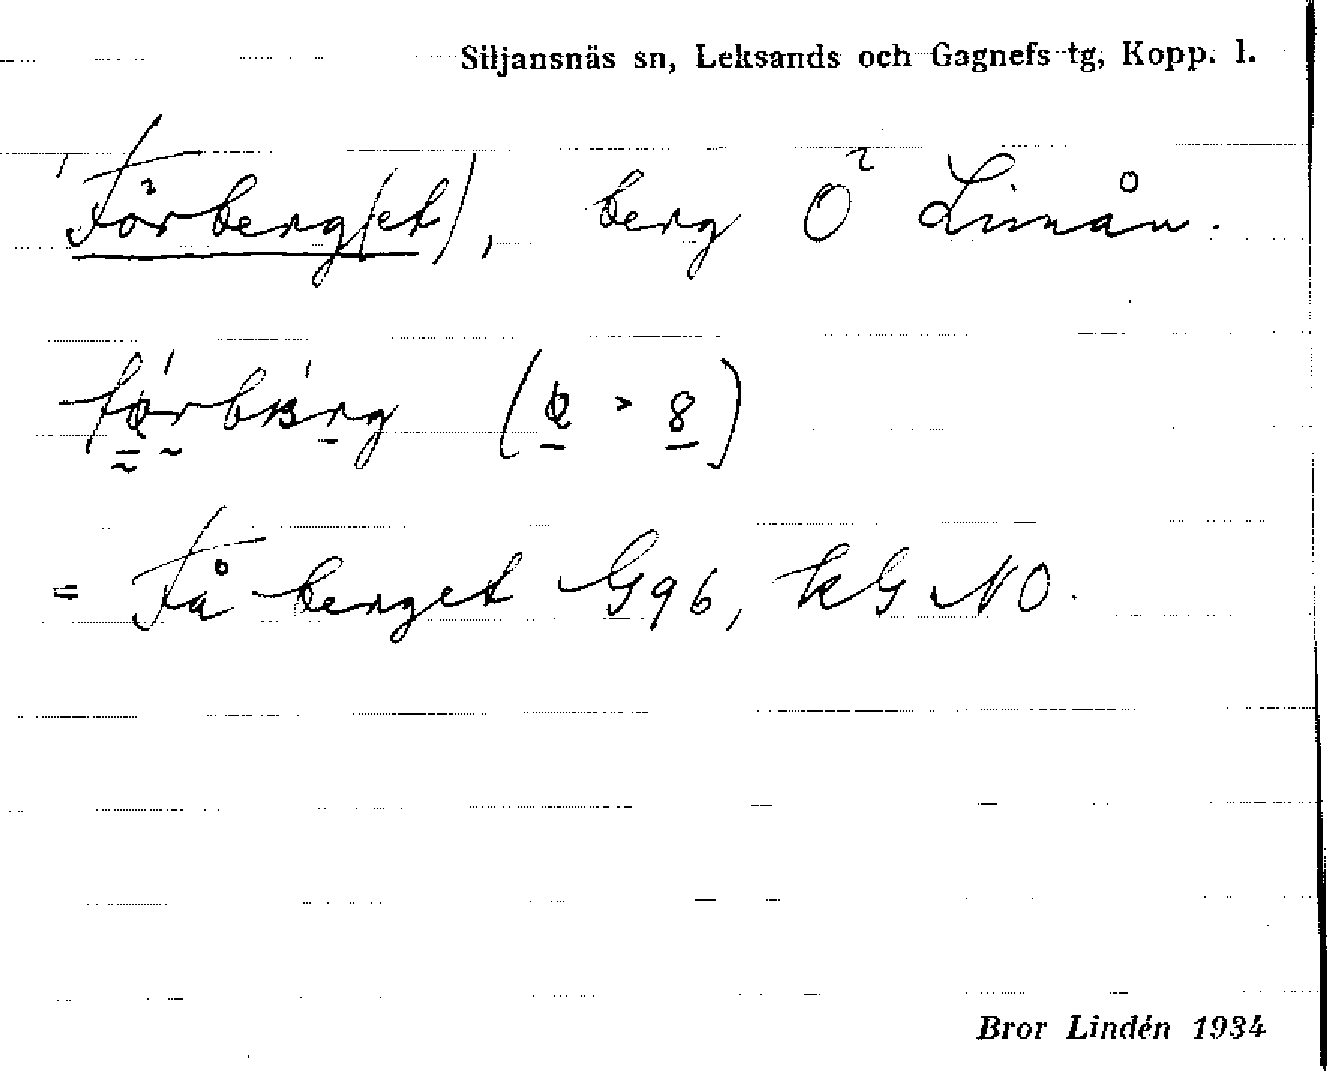 Siljansnäs sn, Leksands och Gagnefs tg, Kopp. l.
Fårberg(et), berg O Limån.
= Fåberget G96, kG NO.
Bror Lindén 1934